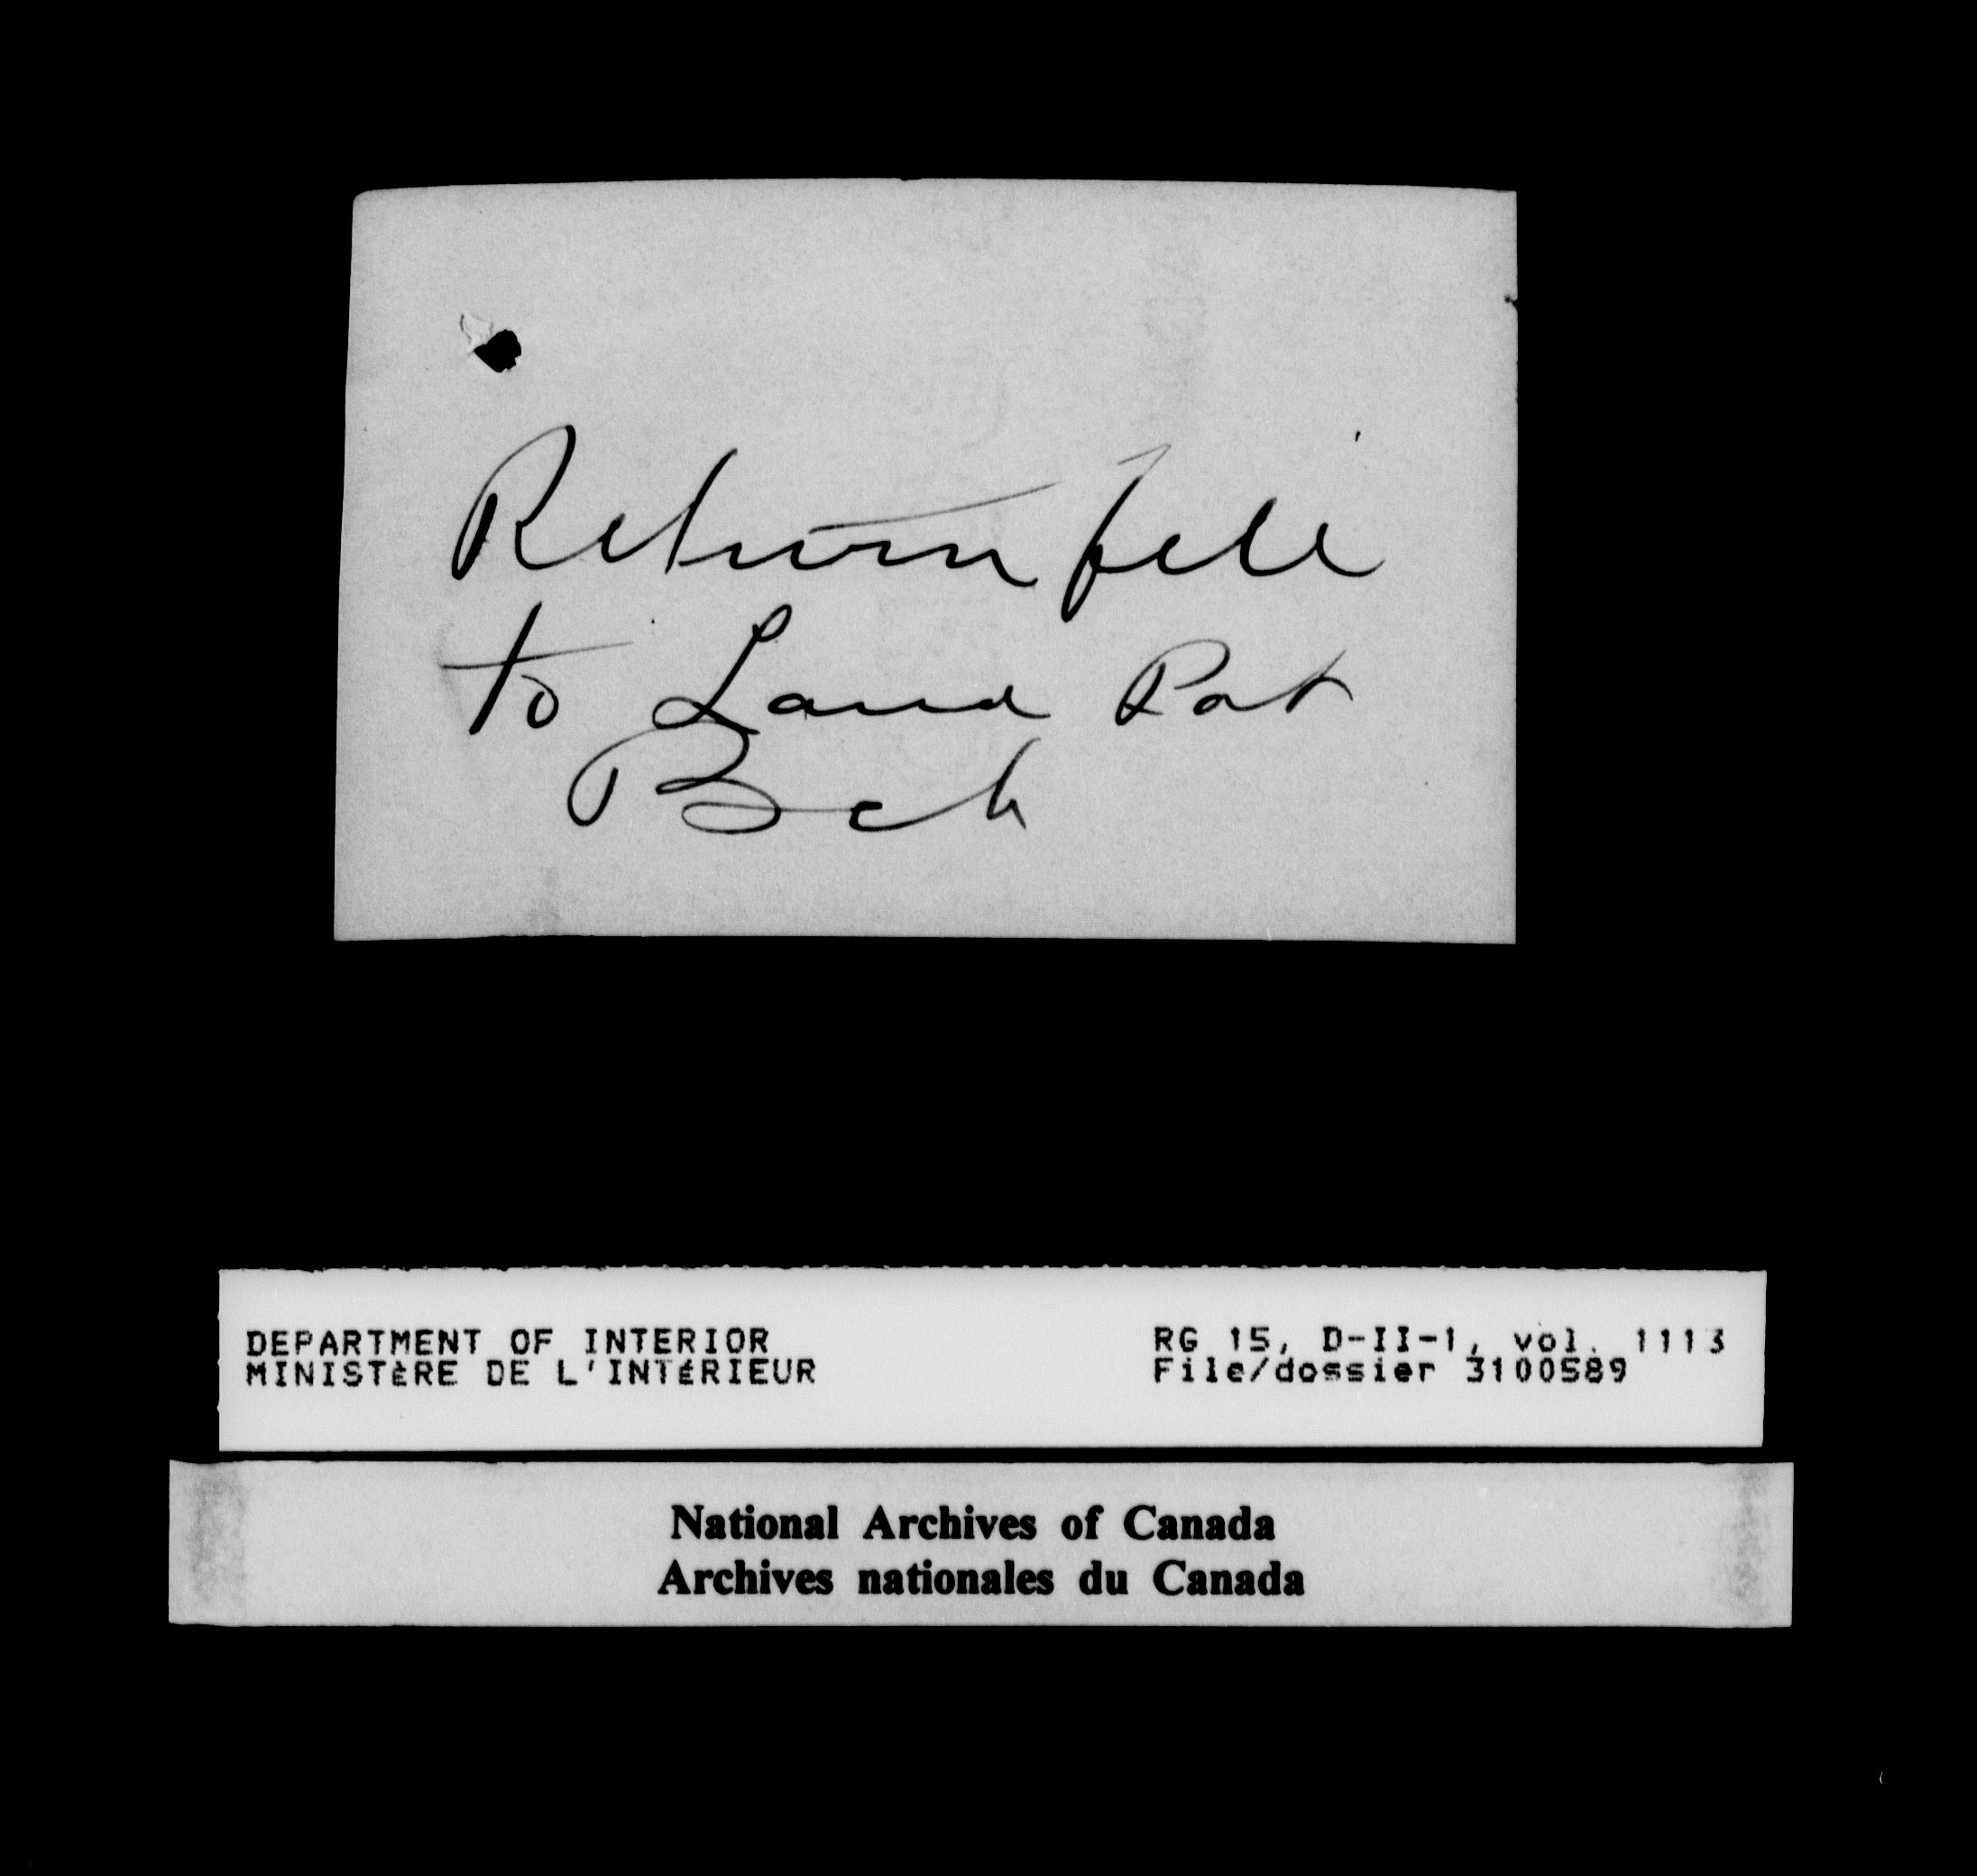 Return file
to Land Pat
Bch
DEPARTMENT OF INTERIOR
MINISTÈRE DE L'INTÉRIEUR
RG 15, D-II-1, vol. 1113
File/dossier 3100589
National Archives of Canada
Archives nationales du Canada